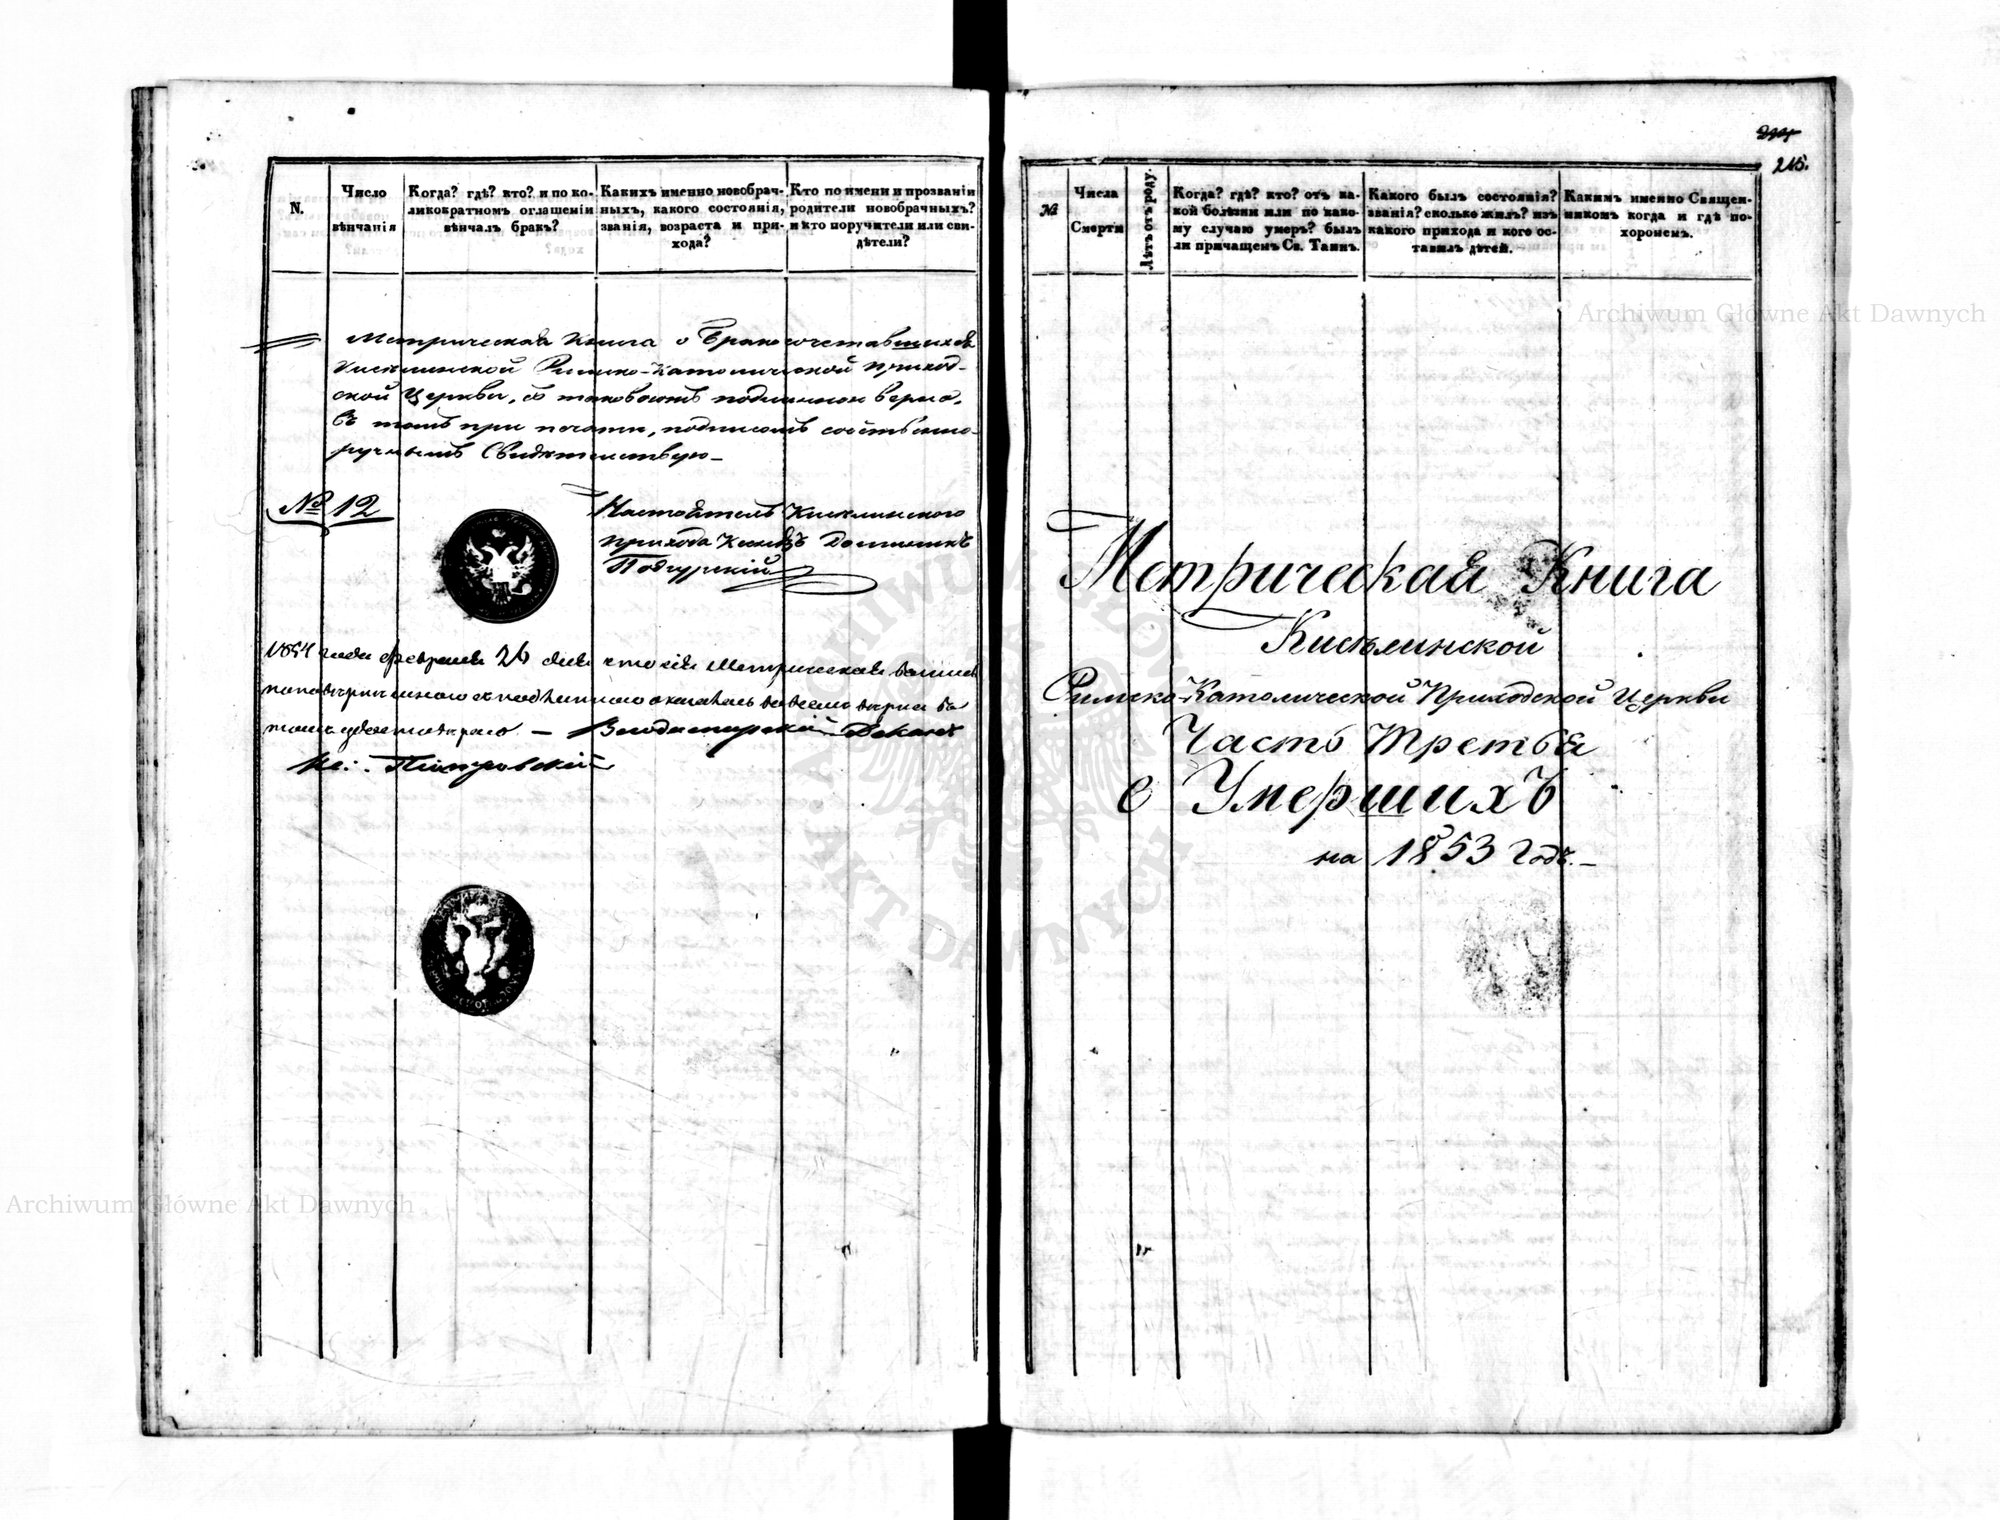 N.
Число
вѣнчанія
Когда? гдѣ? кто? и по ко-
ликократномъ оглашеніи
вѣнчалъ бракъ?
Какихъ именно новобрач-
ныхъ, какого состоянія,
званія, возраста и при-
хода?
Кто по имени и прозванію
родители новобрачныхъ?
и кто поручители или сви-
дѣтели?
Метрическая Книга о Бракосочетавшихся
Кисѣлинской Римско-Католической Приход-
ской Церкви, съ таковоюжъ подлинною верна,
въ томъ при печати, подписомъ собственно-
ручнымъ Свидѣтельствую
№ 12
Настоятель Кисѣлинского
прихода Ксендзъ Доминикъ
Подгурскій
1854 года Февраля 26 дня сія Метрическая
оказалась во всемъ верна въ
томъ удостовѣряю — Владимирскій Деканъ
Кс:
215.
№
Числа
Смерти
Лѣтъ отъ роду.
Когда? гдѣ? кто? отъ ка-
кой болѣзни или по како-
му случаю умеръ? былъ
ли причащенъ Св. Таинъ.
Какого былъ состоянія?
званія? сколько жилъ? изъ
какого прихода и кого ос-
тавилъ дѣтей.
Какимъ именно Священ-
никомъ когда и гдѣ по-
хороненъ.
Метрическая Книга
Кисѣлинской
Римско-Католической Приходской Церкви
Часть Третья
о Умершихъ
на 1853 Годъ.
Archiwum Główne Akt Dawnych
Archiwum Główne Akt Dawnych
ARCHIWUM GŁÓWNE
AKT DAWNYCH